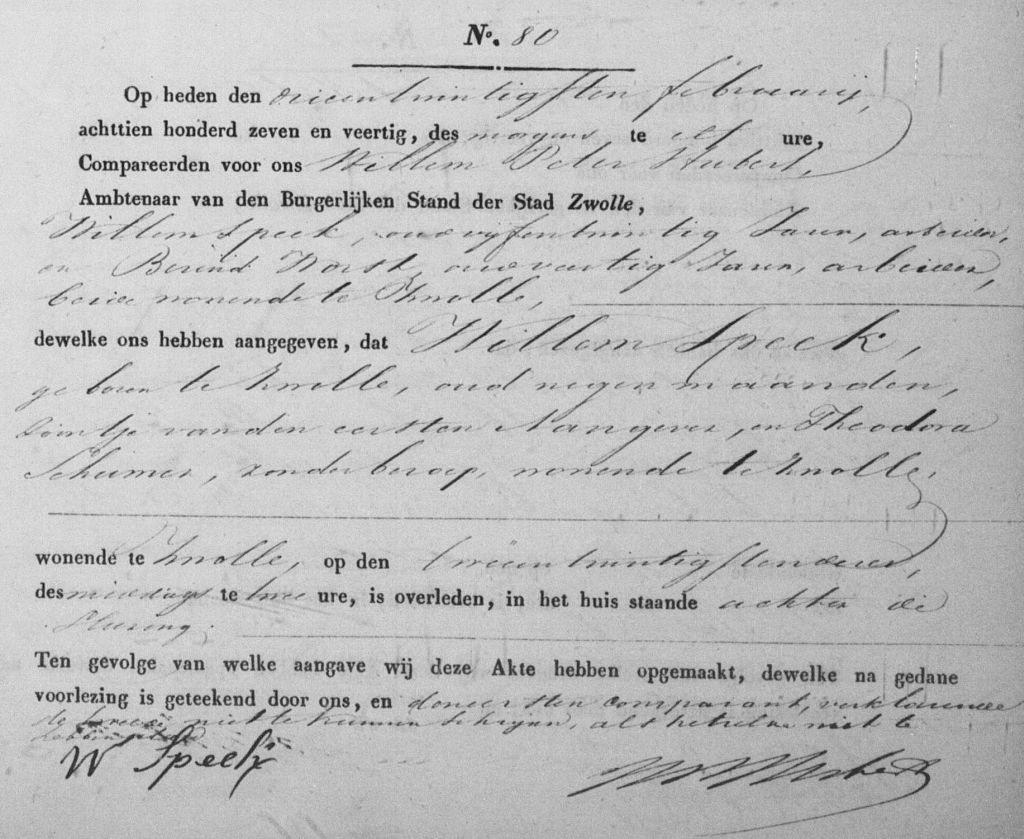 No. 80
Op heden den drieentwintigsten februarij,
achttien honderd zeven en veertig, des morgens te elf ure,
Compareerden voor ons Willem Peter Hubert,
Ambtenaar van den Burgerlijken Stand der Stad Zwolle,
Willem Speek, oud vyfentwintig Jaren, arbeider,
en Berend Worst, oud veertig Jaren, arbeider,
beide wonende te Zwolle,
dewelke ons hebben aangegeven, dat Willem Speek,
geboren te Zwolle, oud negen maanden,
zoontje van den eersten Aangever, en Theodora
Schumer, zonder beroep, wonende te Zwolle,
wonende te Zwolle, op den tweeentwintigsten dezer,
des middags te twee ure, is overleden, in het huis staande achter de
Ten gevolge van welke aangave wij deze Akte hebben opgemaakt, dewelke na gedane
voorlezing is geteekend door ons, en den eersten comparant, verklarende
de tweede niet te kunnen schryven, als hetzelve niet te
hebben geleerd
W Speek